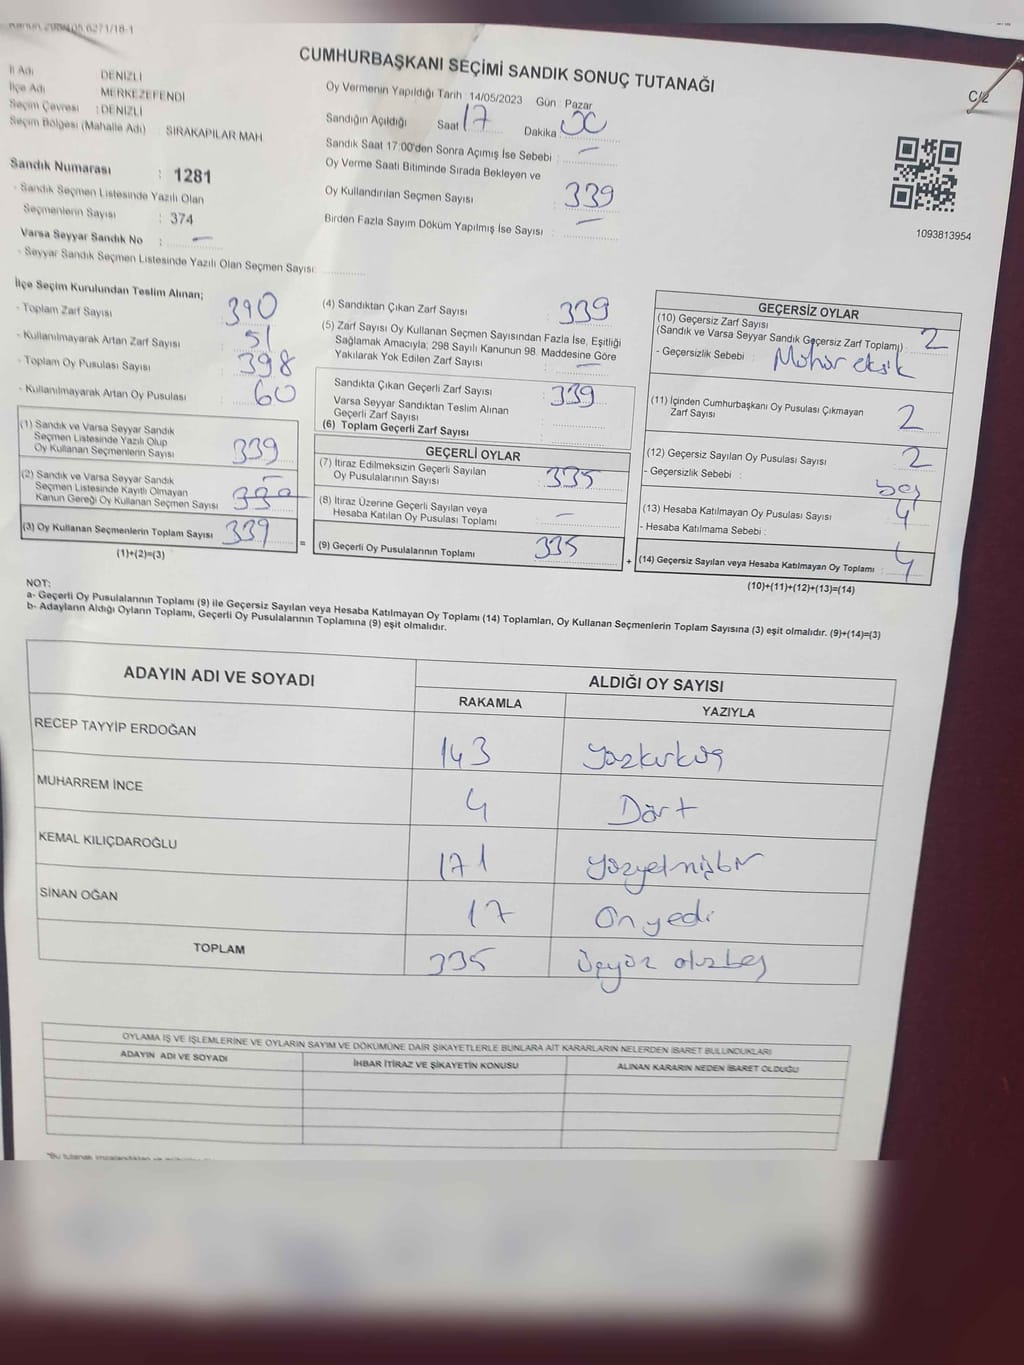 CUMHURBAŞKANI SEÇİMİ SANDIK SONUÇ TUTANAĞI
C/2
İl Adı DENİZLİ
İlçe Adı MERKEZEFENDİ
Seçim Çevresi : DENİZLİ
Seçim Bölgesi (Mahalle Adı) : SIRAKAPILAR MAH
Sandık Numarası : 1281
- Sandık Seçmen Listesinde Yazılı Olan
Seçmenlerin Sayısı : 374
Varsa Seyyar Sandık No : -
- Seyyar Sandık Seçmen Listesinde Yazılı Olan Seçmen Sayısı:
Oy Vermenin Yapıldığı Tarih : 14/05/2023 Gün : Pazar
Sandığın Açıldığı Saat 17 Dakika
Sandık Saat 17:00'den Sonra Açımış İse Sebebi : -
Oy Verme Saati Bitiminde Sırada Bekleyen ve
Oy Kullandırılan Seçmen Sayısı : 339
Birden Fazla Sayım Döküm Yapılmış İse Sayısı : -
1093813954
İlçe Seçim Kurulundan Teslim Alınan;
- Toplam Zarf Sayısı : 390
- Kullanılmayarak Artan Zarf Sayısı : 51
- Toplam Oy Pusulası Sayısı : 398
- Kullanılmayarak Artan Oy Pusulası : 60
(1) Sandık ve Varsa Seyyar Sandık
Seçmen Listesinde Yazılı Olup
Oy Kullanan Seçmenlerin Sayısı 339
(2) Sandık ve Varsa Seyyar Sandık
Seçmen Listesinde Kayıtlı Olmayan
Kanun Gereği Oy Kullanan Seçmen Sayısı -
(3) Oy Kullanan Seçmenlerin Toplam Sayısı 339 =
(1)+(2)=(3)
(4) Sandıktan Çıkan Zarf Sayısı : 339
(5) Zarf Sayısı Oy Kullanan Seçmen Sayısından Fazla İse, Eşitliği
Sağlamak Amacıyla; 298 Sayılı Kanunun 98. Maddesine Göre
Yakılarak Yok Edilen Zarf Sayısı : -
Sandıkta Çıkan Geçerli Zarf Sayısı : 339
Varsa Seyyar Sandıktan Teslim Alınan
Geçerli Zarf Sayısı :
(6) Toplam Geçerli Zarf Sayısı :
GEÇERLİ OYLAR
(7) İtiraz Edilmeksizin Geçerli Sayılan
Oy Pusulalarının Sayısı : 335
(8) İtiraz Üzerine Geçerli Sayılan veya
Hesaba Katılan Oy Pusulası Toplamı : -
(9) Geçerli Oy Pusulalarının Toplamı : 335 +
GEÇERSİZ OYLAR
(10) Geçersiz Zarf Sayısı
(Sandık ve Varsa Seyyar Sandık Geçersiz Zarf Toplamı) : 2
- Geçersizlik Sebebi : Mühür eksik
(11) İçinden Cumhurbaşkanı Oy Pusulası Çıkmayan
Zarf Sayısı 2
(12) Geçersiz Sayılan Oy Pusulası Sayısı : 2
- Geçersizlik Sebebi : boş
(13) Hesaba Katılmayan Oy Pusulası Sayısı : 4
- Hesaba Katılmama Sebebi :
(14) Geçersiz Sayılan veya Hesaba Katılmayan Oy Toplamı : 4
(10)+(11)+(12)+(13)=(14)
NOT:
a- Geçerli Oy Pusulalarının Toplamı (9) ile Geçersiz Sayılan veya Hesaba Katılmayan Oy Toplamı (14) Toplamları, Oy Kullanan Seçmenlerin Toplam Sayısına (3) eşit olmalıdır. (9)+(14)=(3)
b- Adayların Aldığı Oyların Toplamı, Geçerli Oy Pusulalarının Toplamına (9) eşit olmalıdır.
ADAYIN ADI VE SOYADI ALDIĞI OY SAYISI
RAKAMLA YAZIYLA
RECEP TAYYİP ERDOĞAN 143 yüzkırküç
MUHARREM İNCE 4 Dört
KEMAL KILIÇDAROĞLU 171 yüzyetmişbir
SİNAN OĞAN 17 On yedi
TOPLAM 335 üçyüz otuzbeş
OYLAMA İŞ VE İŞLEMLERİNE VE OYLARIN SAYIM VE DÖKÜMÜNE DAİR ŞİKAYETLERLE BUNLARA AİT KARARLARIN NELERDEN İBARET BULUNDUKLARI
ADAYIN ADI VE SOYADI İHBAR İTİRAZ VE ŞİKAYETİN KONUSU ALINAN KARARIN NEDEN İBARET OLDUĞU